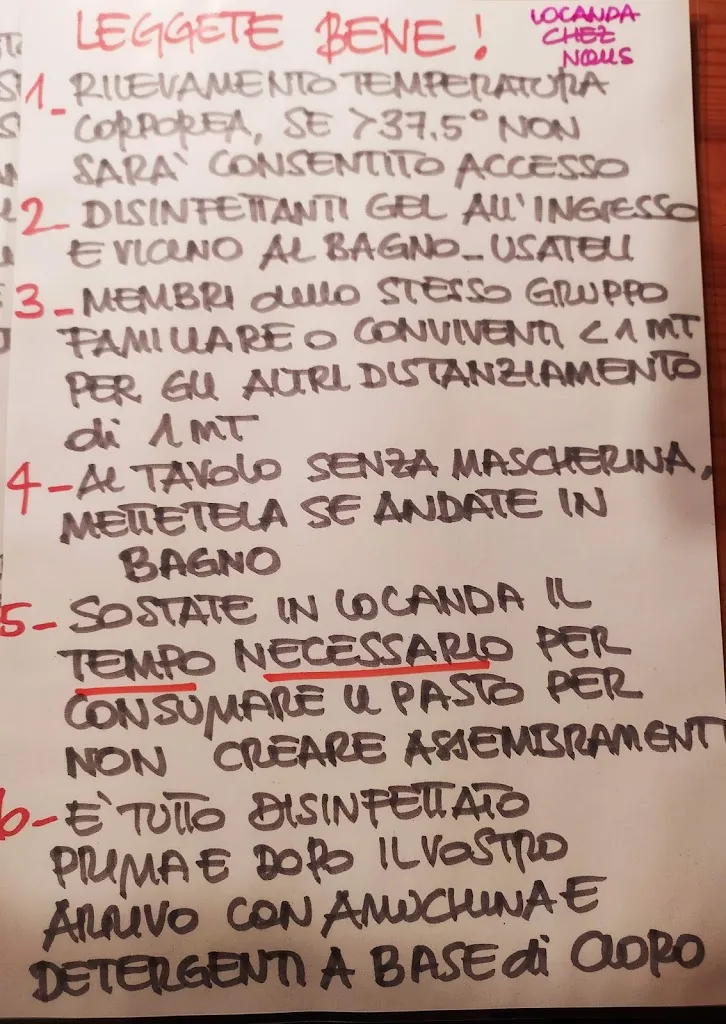 LEGGETE BENE!
LOCANDA
CHEZ
NOUS
1- RILEVAMENTO TEMPERATURA
CORPOREA, SE >37.5° NON
SARA' CONSENTITO ACCESSO
2- DISINFETTANTI GEL ALL'INGRESSO
E VICINO AL BAGNO - USATELI
3- MEMBRI dello STESSO GRUPPO
FAMILIARE O CONVIVENTI <1 MT
PER GLI ALTRI DISTANZIAMENTO
di 1 MT
4- AL TAVOLO SENZA MASCHERINA,
METTETELA SE ANDATE IN
BAGNO
5- SOSTATE IN LOCANDA IL
TEMPO NECESSARIO PER
CONSUMARE IL PASTO PER
NON CREARE ASSEMBRAMENTI
6- E' TUTTO DISINFETTATO
PRIMA E DOPO IL VOSTRO
ARRIVO CON AMUCHINA E
DETERGENTI A BASE di CLORO